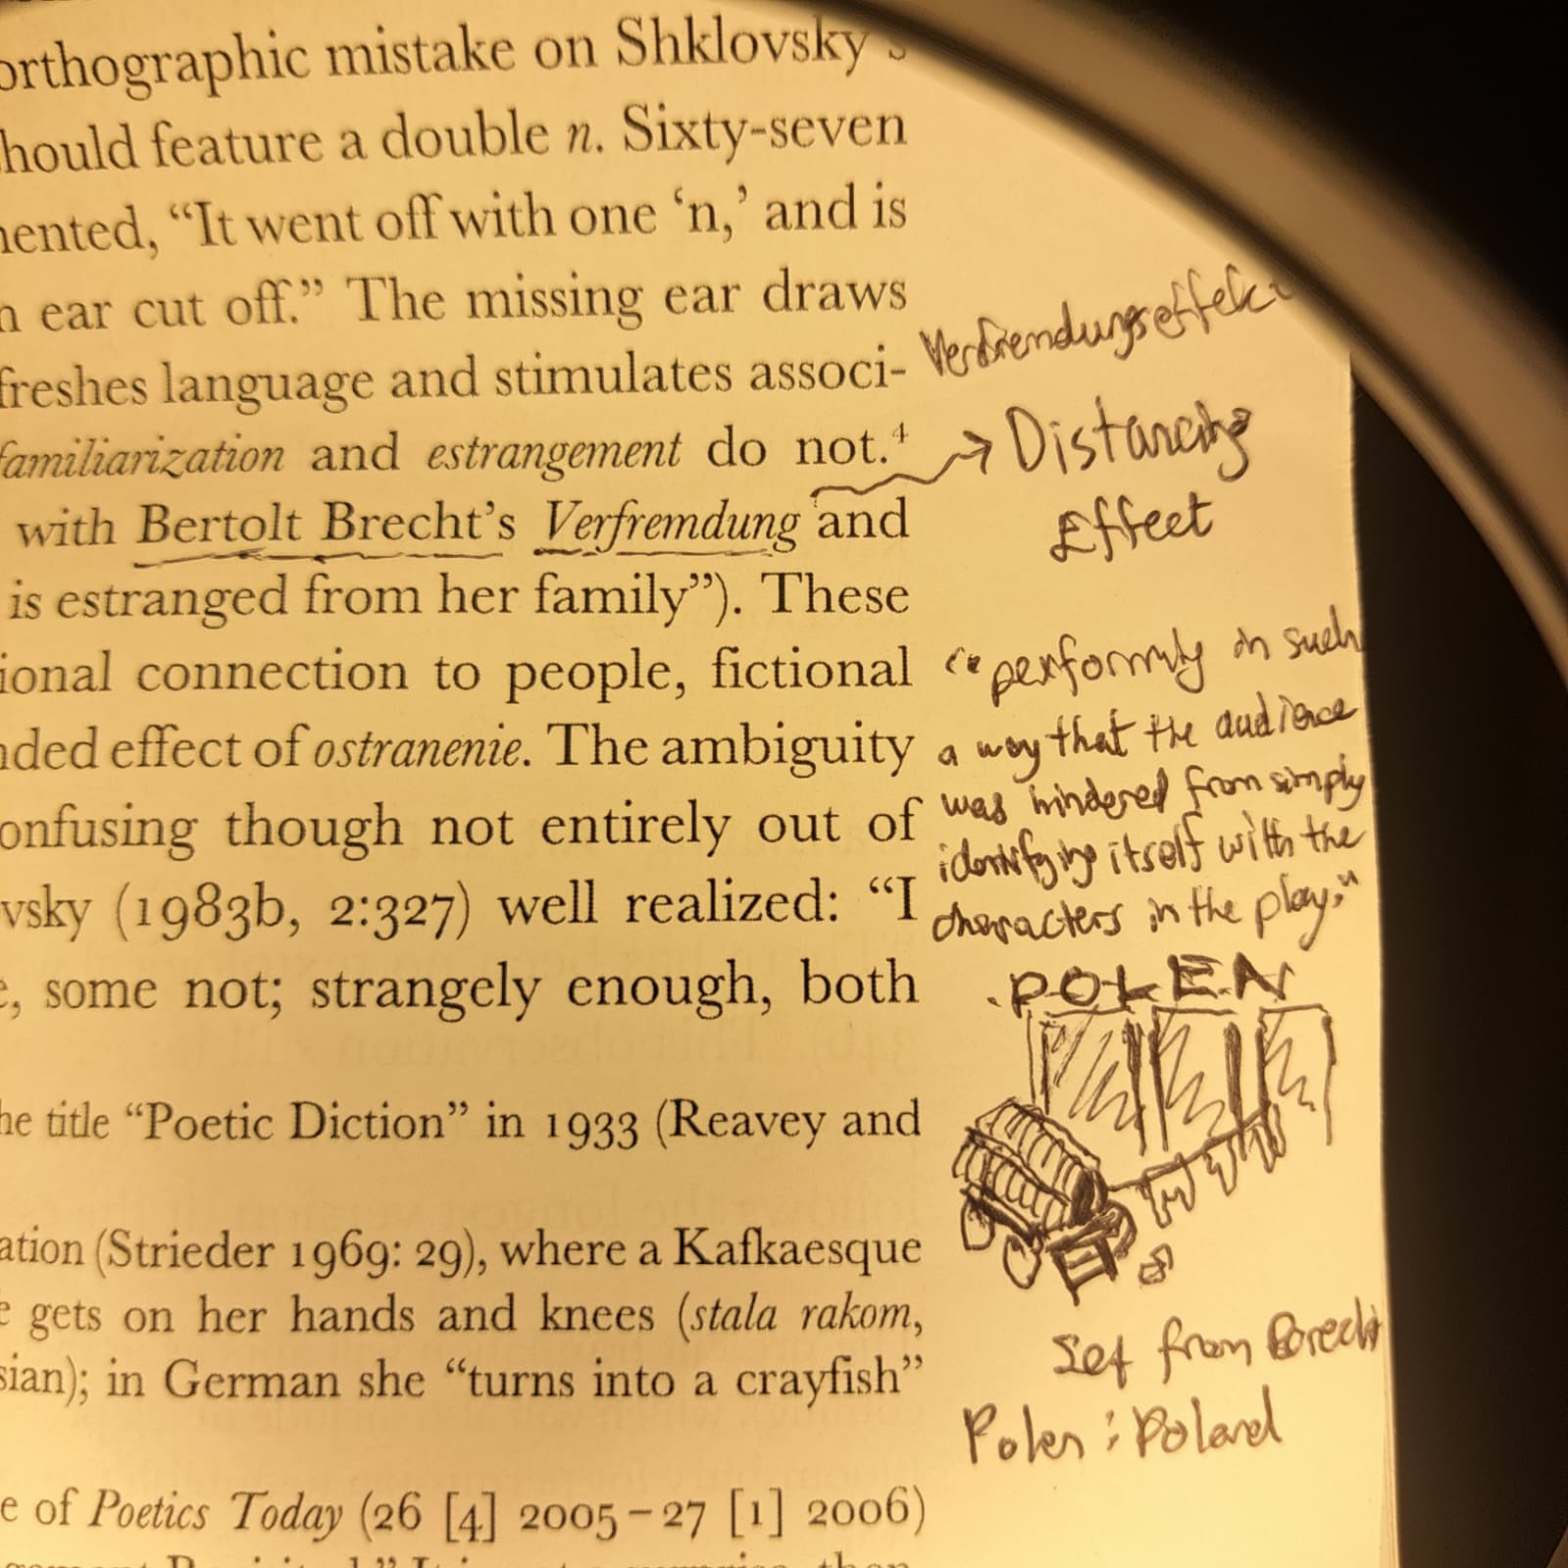 orthographic mistake on Shklovsky's
hould feature a double n. Sixty-seven
nented, “It went off with one ‘n,’ and is
n ear cut off.” The missing ear draws
freshes language and stimulates associ-
familiarization and estrangement do not.⁴
with Bertolt Brecht’s Verfremdung and
is estranged from her family”). These
ional connection to people, fictional
nded effect of ostranenie. The ambiguity
onfusing though not entirely out of
vsky (1983b, 2:327) well realized: “I
e, some not; strangely enough, both
he title “Poetic Diction” in 1933 (Reavey and
ation (Strieder 1969: 29), where a Kafkaesque
e gets on her hands and knees (stala rakom,
sian); in German she “turns into a crayfish”
e of Poetics Today (26 [4] 2005–27 [1] 2006)
Verfremdungseffekt
→ Distancing
Effect
“performing in such
a way that the audience
was hindered from simply
identifying itself with the
characters in the play.”
POLEN
Set from Brecht
Polen : Poland